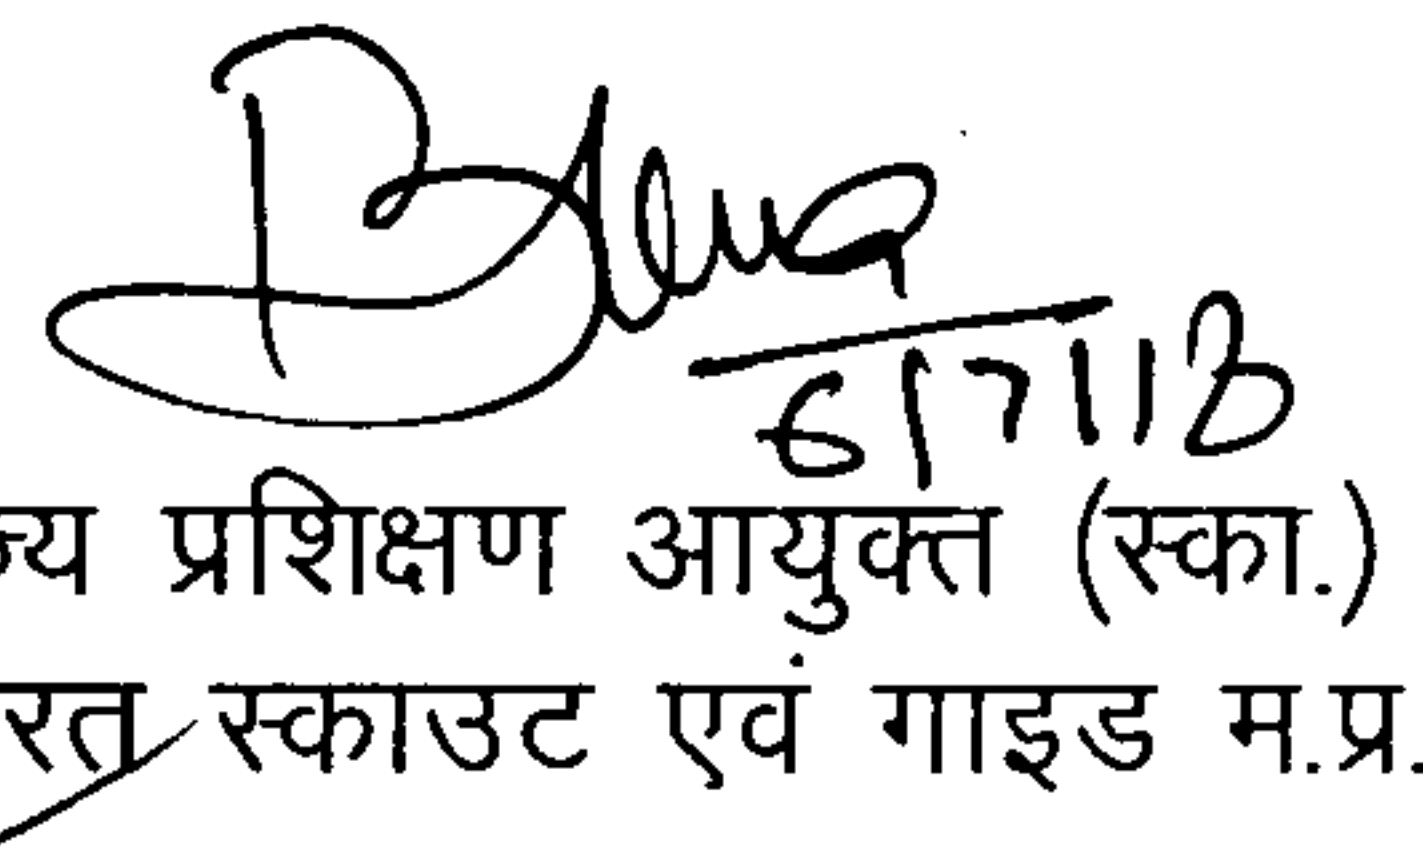 6/7/18
ज्य प्रशिक्षण आयुक्त (स्का.)
रत स्काउट एवं गाइड म.प्र.